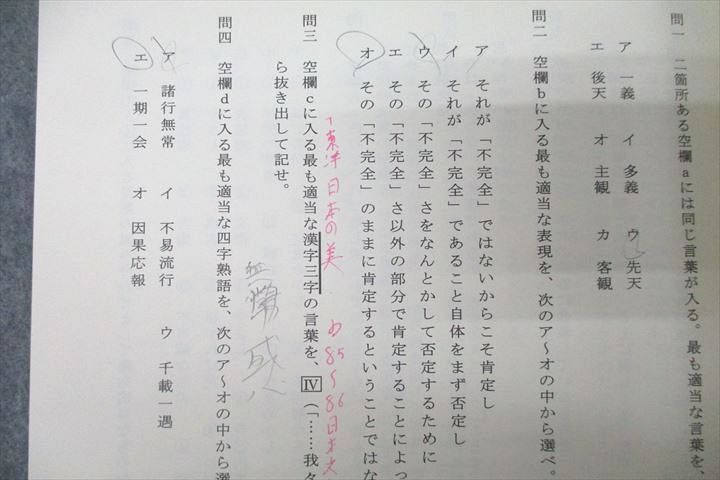 問一　二箇所ある空欄aには同じ言葉が入る。最も適当な言葉を、
ア　一義　イ　多義　ウ　先天
エ　後天　オ　主観　カ　客観
問二　空欄bに入る最も適当な表現を、次のア～オの中から選べ。
ア　それが「不完全」ではないからこそ肯定し
イ　それが「不完全」であること自体をまず否定し
ウ　その「不完全」さをなんとかして否定するために
エ　その「不完全」さ以外の部分で肯定することによっ
オ　その「不完全」のままに肯定するということではな
東洋日本の美
85～86日本文
問三　空欄cに入る最も適当な漢字三字の言葉を、Ⅳ（「……我々
ら抜き出して記せ。
感
問四　空欄dに入る最も適当な四字熟語を、次のア～オの中から選
ア　諸行無常　イ　不易流行　ウ　千載一遇
エ　一期一会　オ　因果応報